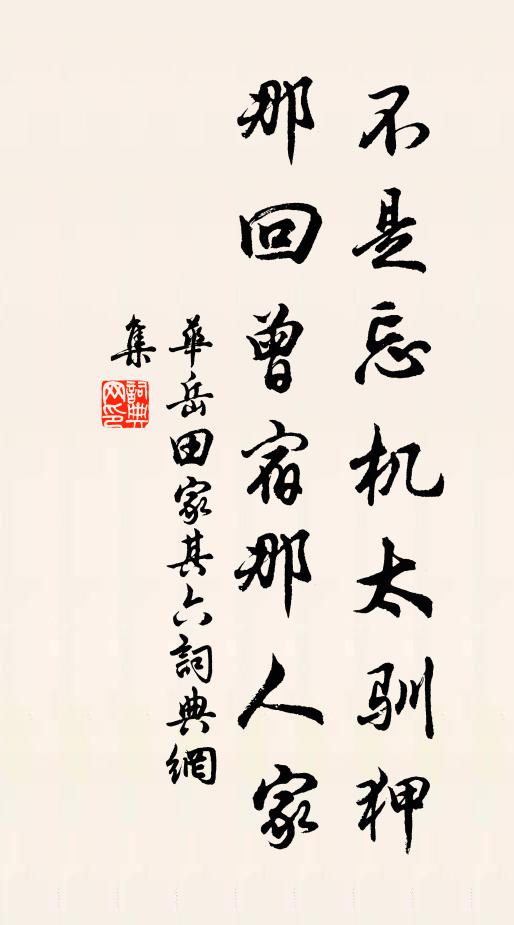 不是忘机太驯狎
那回曾宿那人家
華岳田家其六詞典網
集
詞典网印